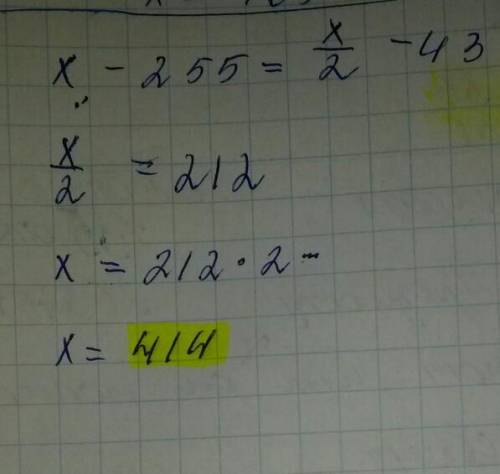 x - 255 = x/2 - 43
x/2 = 212
x = 212 · 2
x = 414